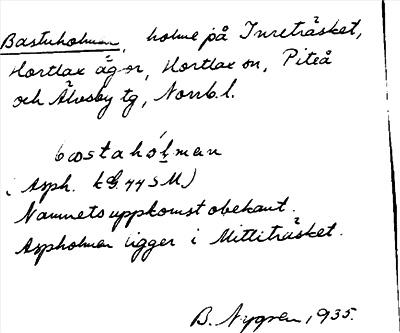 Bastuholmen, holme på Inreträsket,
Hortlax ägor, Hortlax sn, Piteå
och Älvsby tg, Norrb.l.
bastahólman
(Asph. 44 SM)
Namnets uppkomst obekant.
Aspholmen ligger i Mittiträsket.
B. Nygren, 1935.